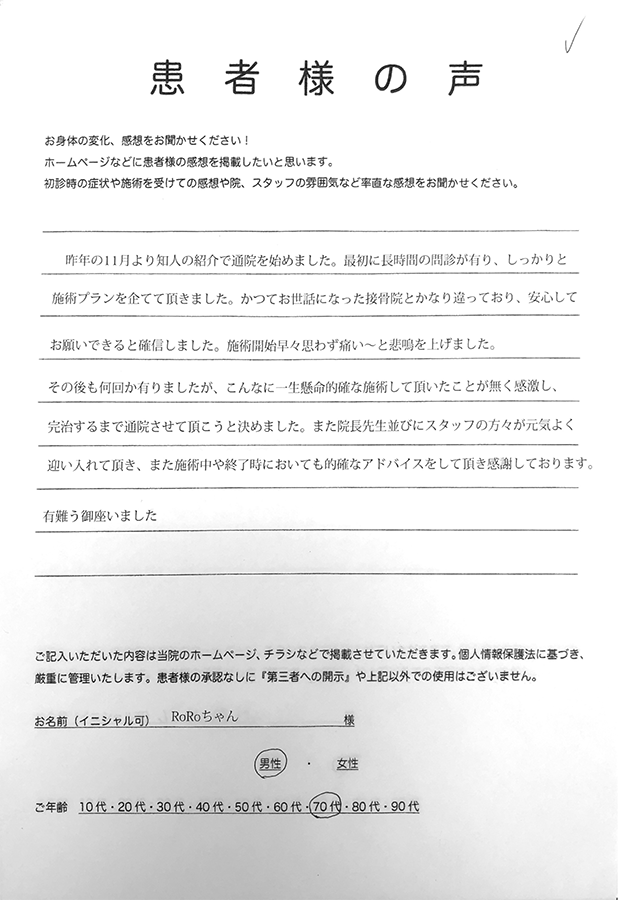 患者様の声
お身体の変化、感想をお聞かせください！
ホームページなどに患者様の感想を掲載したいと思います。
初診時の症状や施術を受けての感想や院、スタッフの雰囲気など率直な感想をお聞かせください。
昨年の11月より知人の紹介で通院を始めました。最初に長時間の問診が有り、しっかりと
施術プランを企てて頂きました。かつてお世話になった接骨院とかなり違っており、安心して
お願いできると確信しました。施術開始早々思わず痛い〜と悲鳴を上げました。
その後も何回か有りましたが、こんなに一生懸命的確な施術して頂いたことが無く感激し、
完治するまで通院させて頂こうと決めました。また院長先生並びにスタッフの方々が元気よく
迎い入れて頂き、また施術中や終了時においても的確なアドバイスをして頂き感謝しております。
有難う御座いました
ご記入いただいた内容は当院のホームページ、チラシなどで掲載させていただきます。個人情報保護法に基づき、
厳重に管理いたします。患者様の承認なしに『第三者への開示』や上記以外での使用はございません。
お名前（イニシャル可） RoRoちゃん 様
男性 ・ 女性
ご年齢 10代・20代・30代・40代・50代・60代・70代・80代・90代